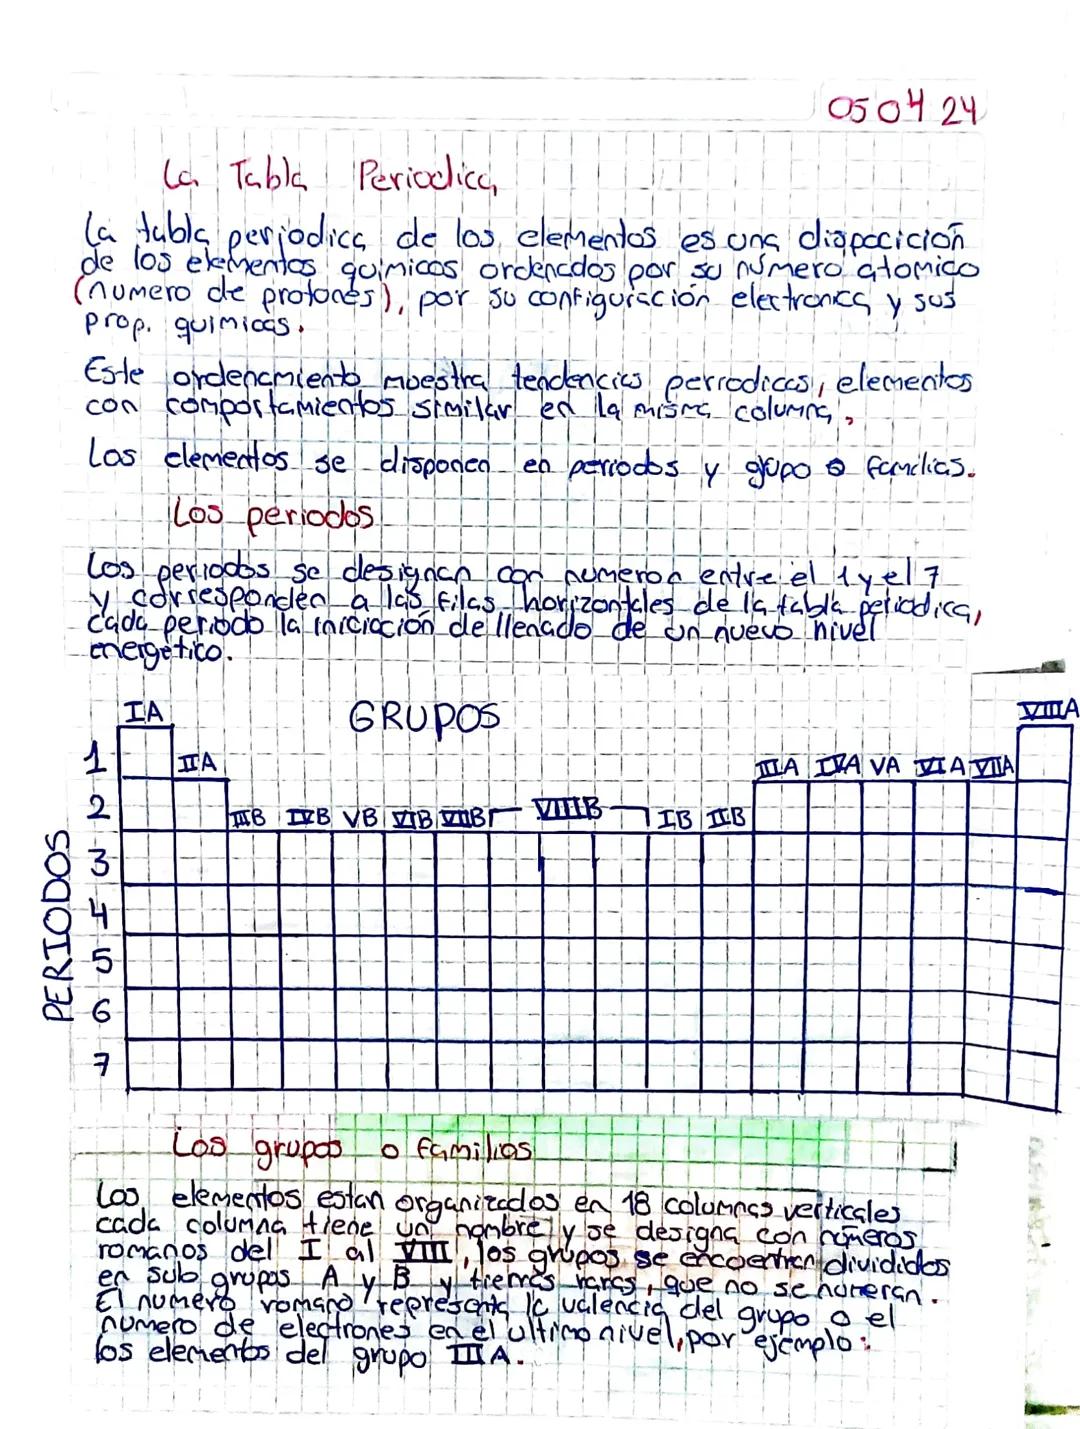 05 04 24
La Tabla Periodica
La tabla periodica de los elementos es una dispocición
de los elementos quimicos ordenados por su número atomico
(numero de protones), por su configuración electronica y sus
prop. quimicas.
Este ordenamiento muestra tendencias perrodicas, elementos
con comportamientos similar en la misma columna,
Los elementos se disponen en periodos y grupo o familias.
Los periodos
Los periodos se designan con numeron entre el 1 y el 7
y corresponden a las filas horizontales de la tabla periodica,
cada periodo la iniciación de llenado de un nuevo nivel
energético.
IA GRUPOS VIIIA
1 IIA IIIA IVA VA VIA VIIA
2 IIIB IVB VB VIB VIIB VIIIB IB IIB
PERIODOS
3
4
5
6
7
Los grupos o familias
Los elementos estan organizados en 18 columnas verticales
cada columna tiene un nombre y se designa con números
romanos del I al VIII, los grupos se encoentran divididos
en sub grupos A y B y tierras raras, que no se numeran.
El numero romano representa la valencia del grupo o el
numero de electrones en el ultimo nivel, por ejemplo:
los elementos del grupo IIIA.